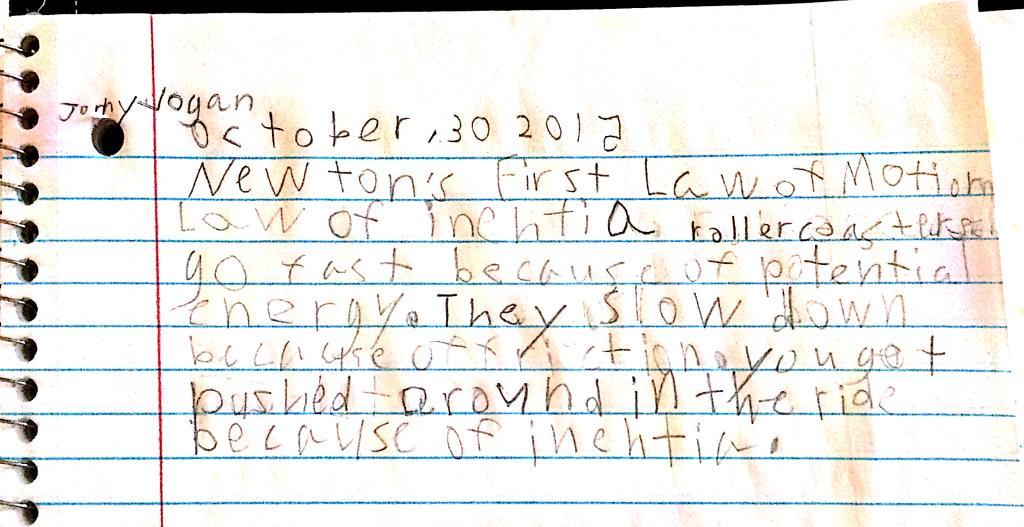 Jomy Jogan
October,30 2012
Newton's First Law of Motion
Law of inehtia rollercoasters
go fast because of potential
energy. They slow down
because of friction. you get
pushed around in the ride
because of inehtia.